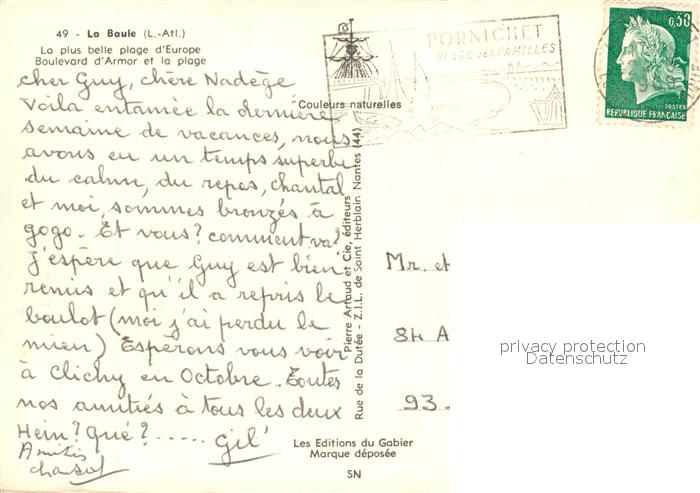 49 - La Baule (L.-Atl.)
La plus belle plage d'Europe
Boulevard d'Armor et la plage
cher Guy, chère Nadège
Voila entamée la dernière
semaine de vacances, nous
avons eu un temps superbe
du calme, du repos, chantal
et moi, sommes bronzés à
gogo. Et vous? comment va?
J'espère que Guy est bien
remis et qu'il a repris le
boulot (moi j'ai perdu le
mien) Espérons vous voir
à Clichy en Octobre. Toutes
nos amitiés à tous les deux
Hein? Qué?...... Gil'
Amitiés
chantal
Couleurs naturelles
Pierre Artaud et Cie, éditeurs
Rue de la Dutée - Z.I.L. de Saint Herblain Nantes (44)
Les Editions du Gabier
Marque déposée
SN
PORNICHET
PLAGE DES FAMILLES
0,30
POSTES
REPUBLIQUE FRANÇAISE
Mr. et
84 A
93
privacy protection
Datenschutz